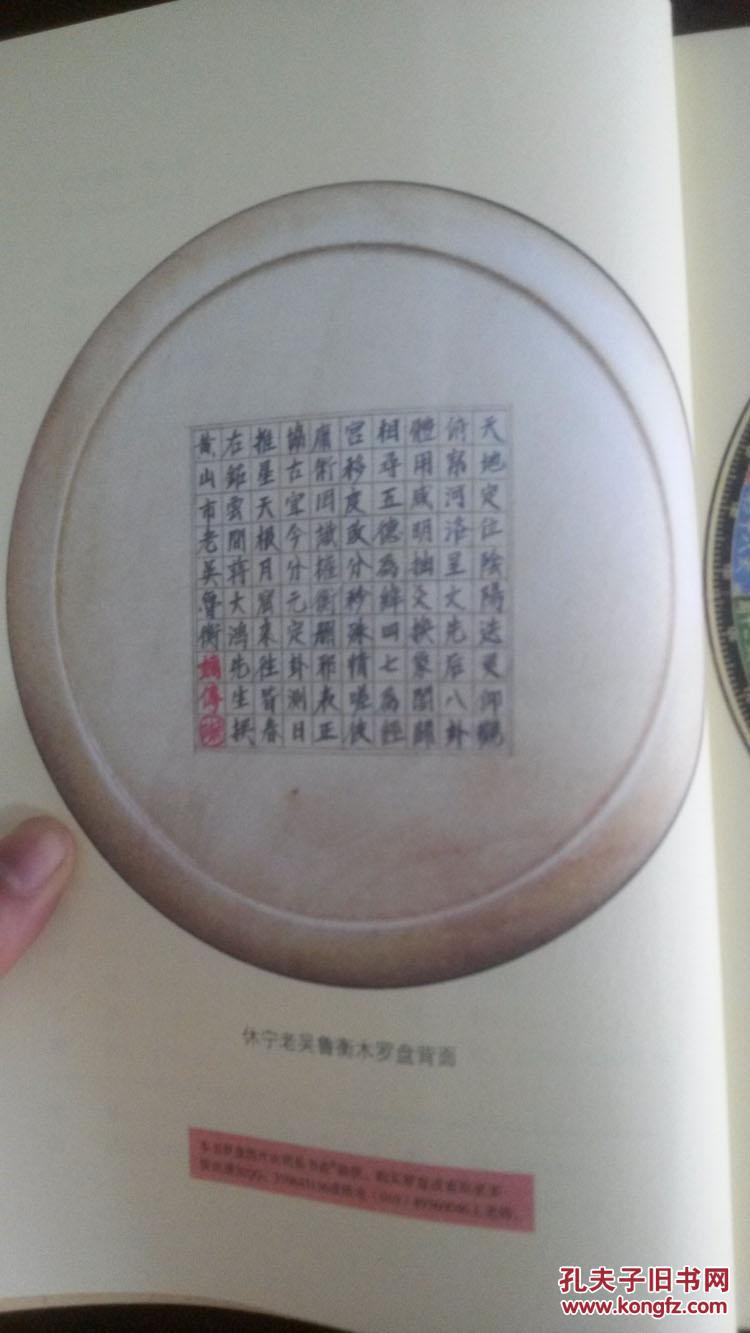 天地定位陰陽迭更仰觀
俯察河洛呈文先后八卦
體用咸明抽爻換象闔闢
相尋五德為緯四七為經
宮移度改分秒殊情嗟彼
庸術罔識權衡剔邪表正
據古宜今分元定卦測日
推星天根月窟來往皆春
右銘雲間蔣大鴻先生撰
黃山市老吳魯衡嫡傳
休宁老吴鲁衡木罗盘背面
孔夫子旧书网
www.kongfz.com